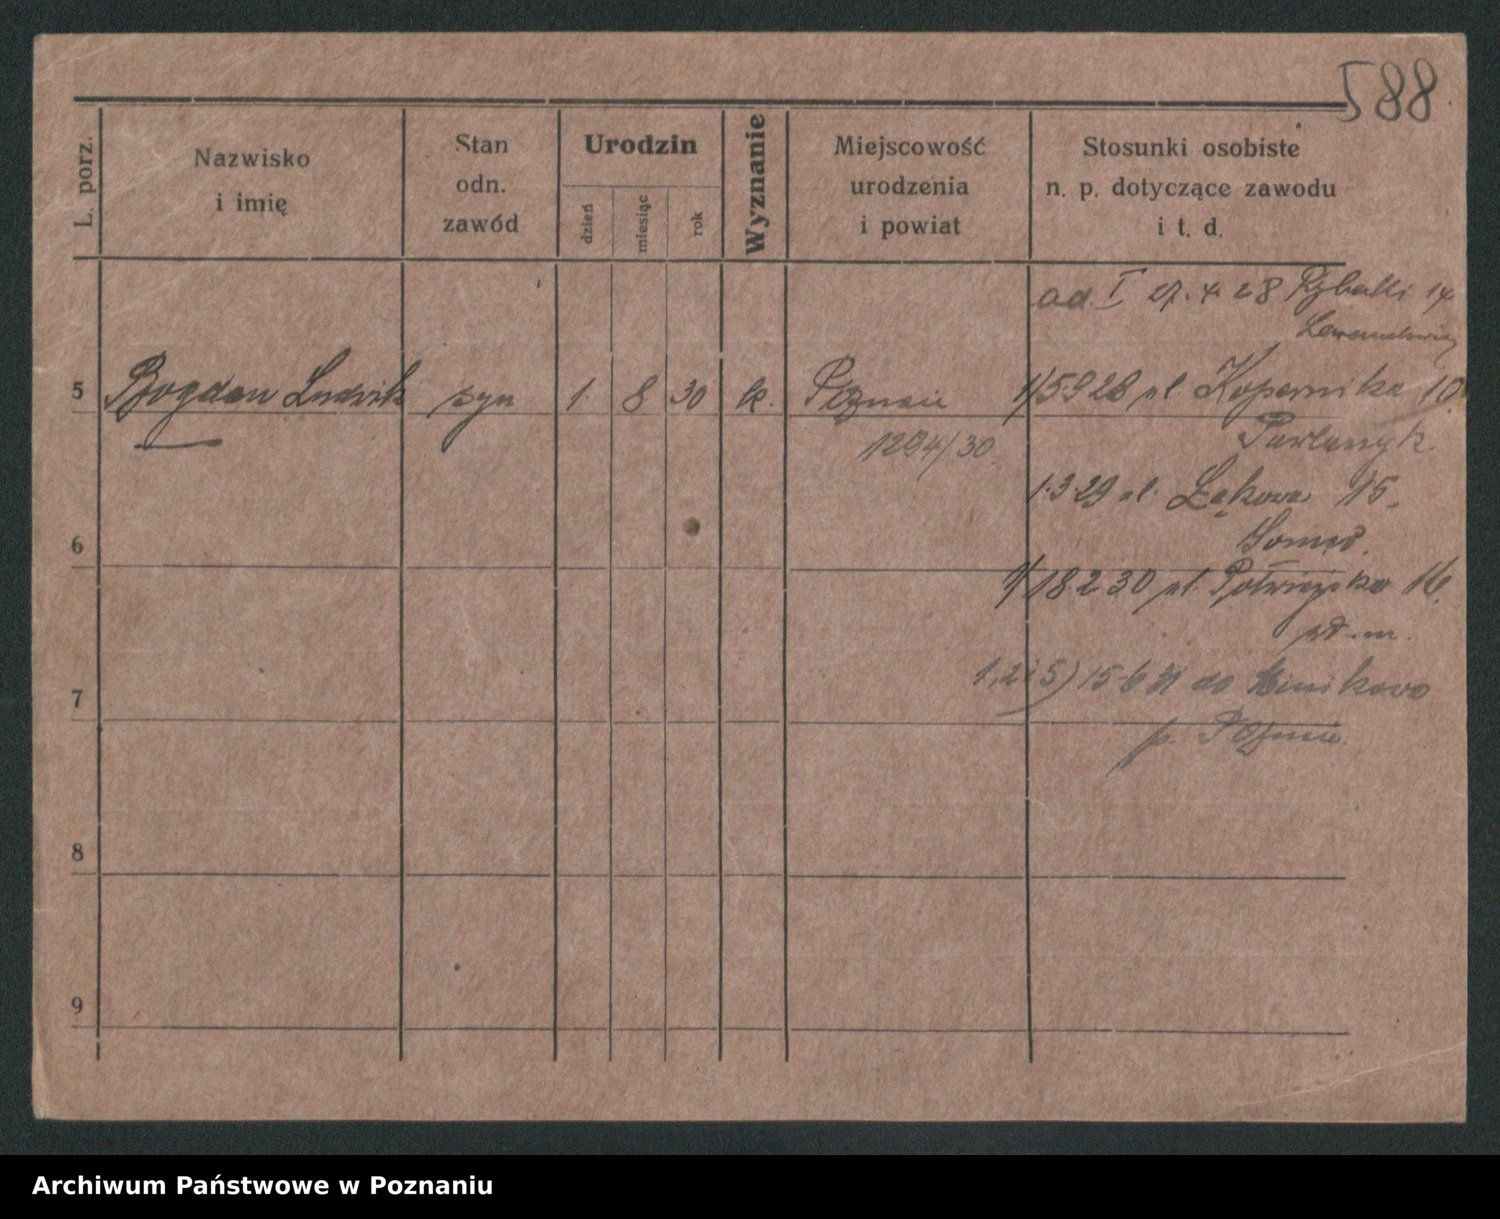 588
L. porz.
Nazwisko
i imię
Stan
odn.
zawód
Urodzin
dzień
miesiąc
rok
Wyznanie
Miejscowość
urodzenia
i powiat
Stosunki osobiste
n. p. dotyczące zawodu
i t. d.
ad I 27.4 28 Rybaki 14
5 Bogdan Ludwik syn 1 8 30 k. Poznań
1294/30
1/5928 ul. Kopernika 10
1.3.29 ul. Łąkowa 15.
6
1/18.2 30 ul. Półwiejska 16.
1,2i5) 15-6 31 do Minikowo
p. Poznań.
7
8
9
Archiwum Państwowe w Poznaniu